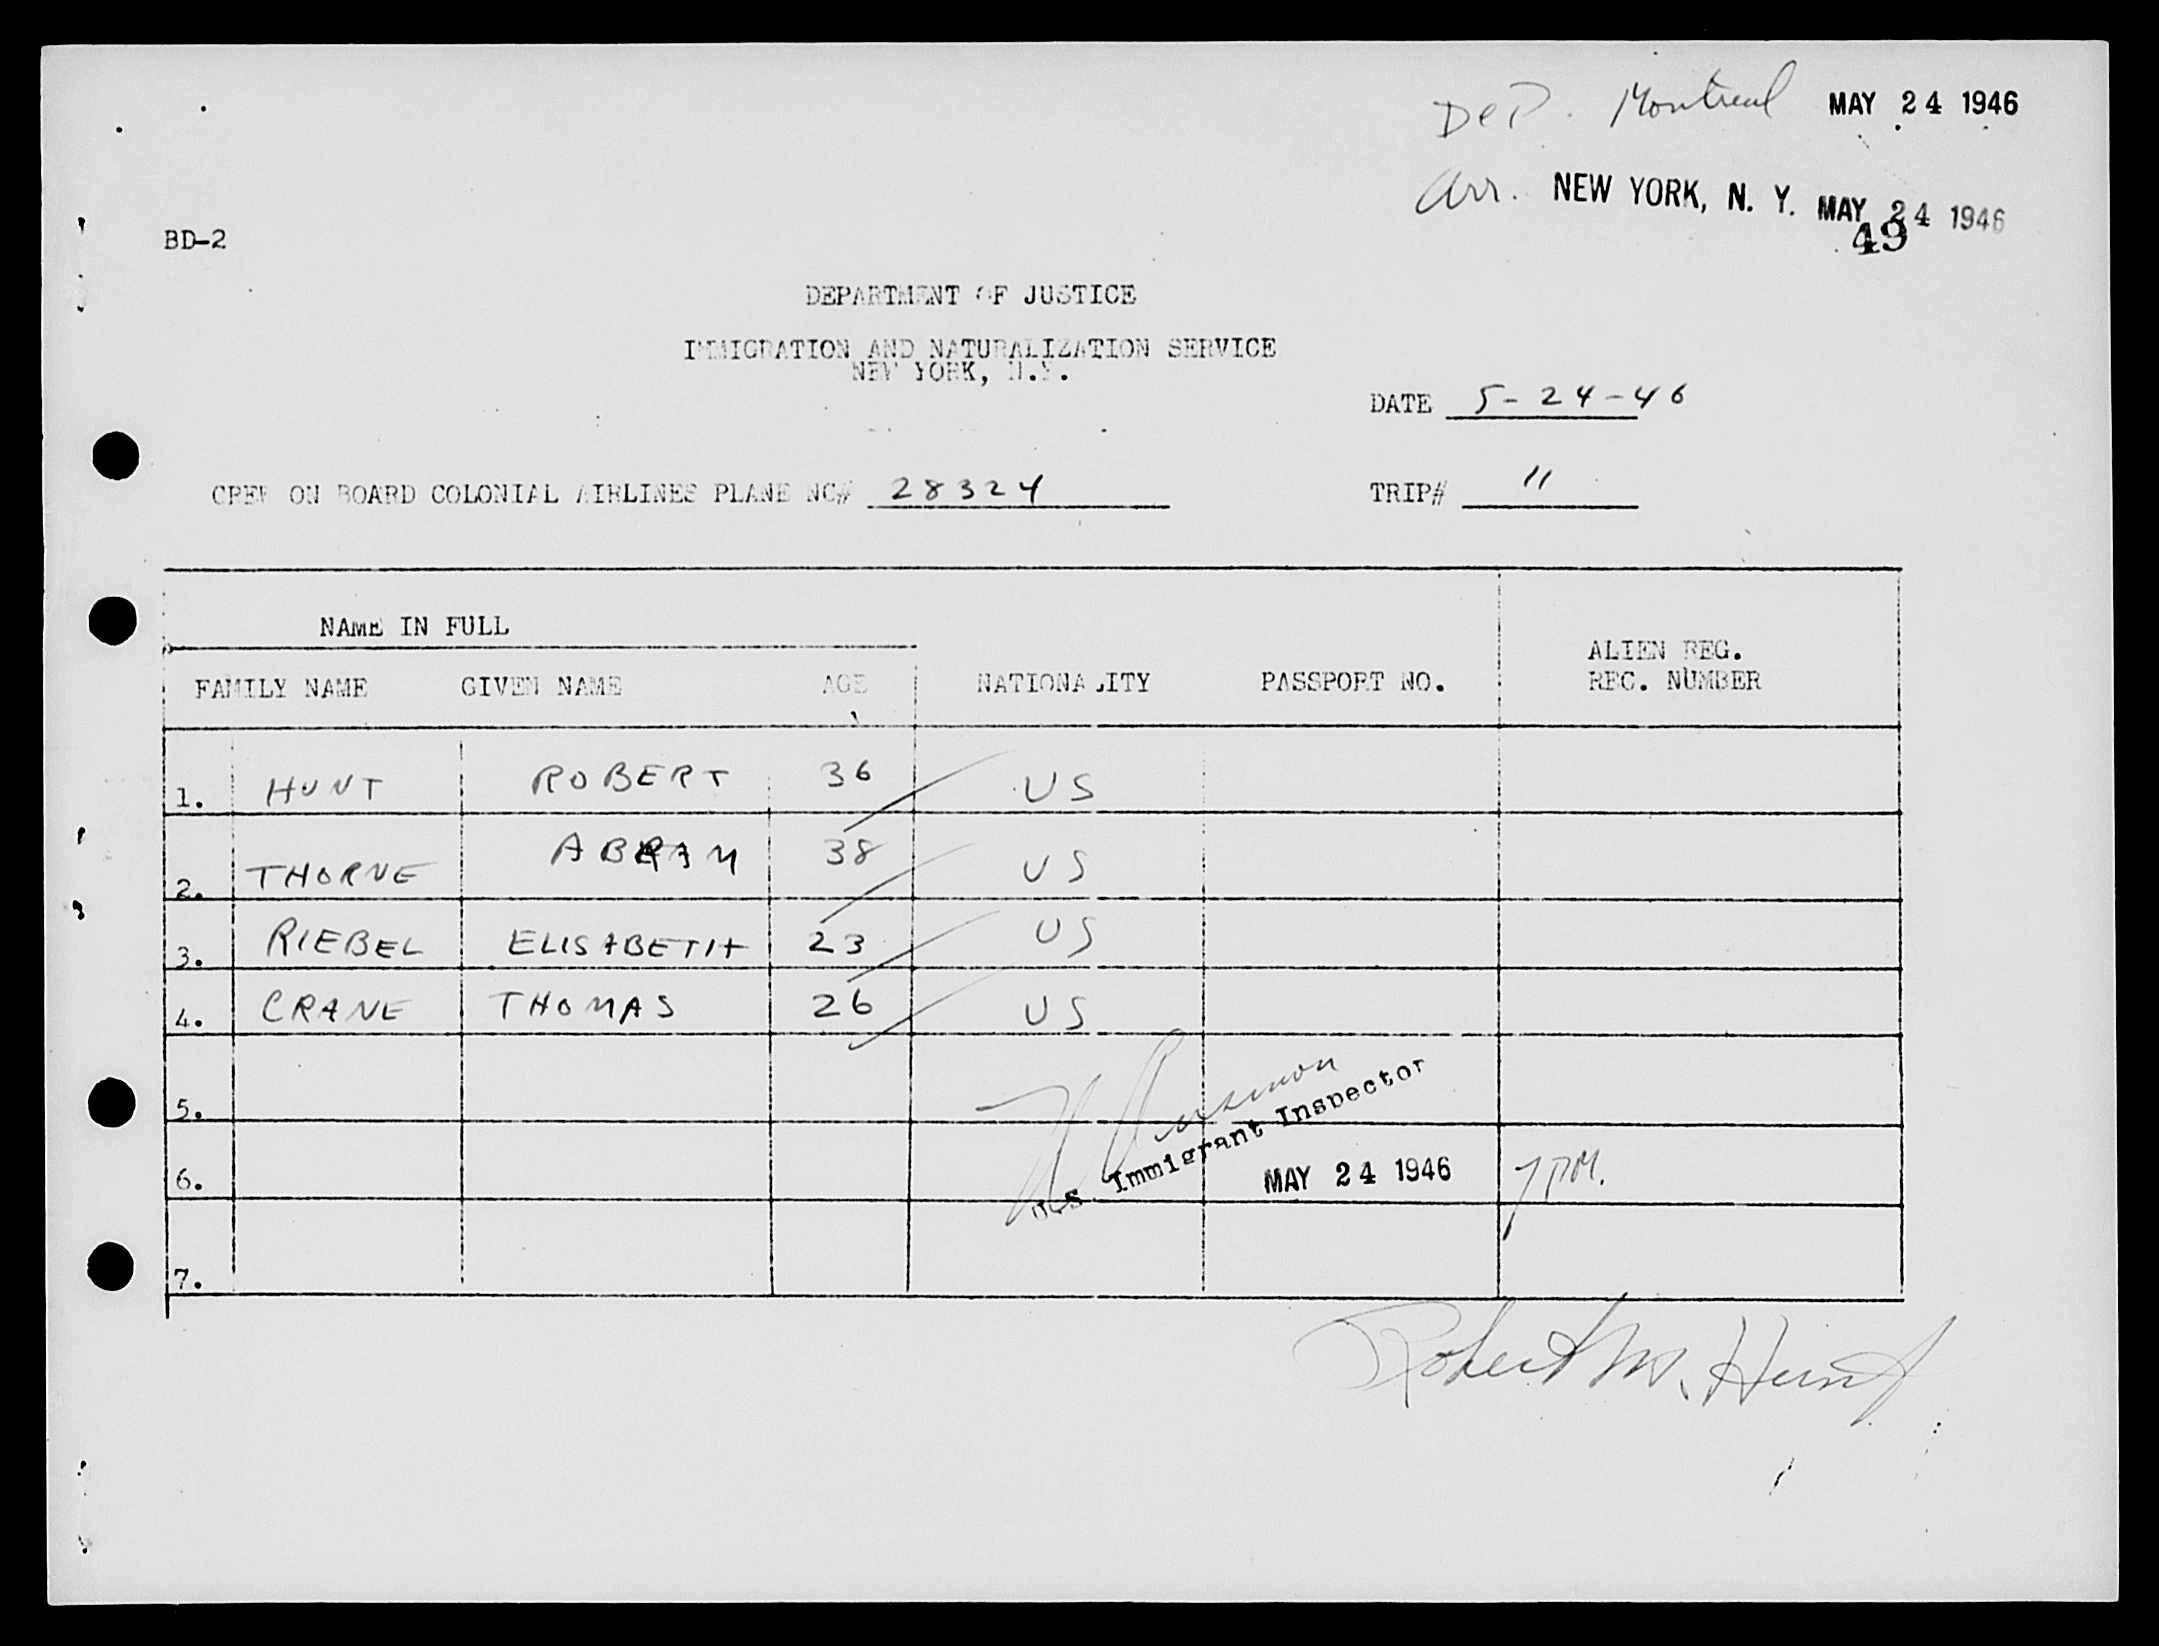 DEP. Montreal MAY 24 1946
Arr. NEW YORK, N. Y. MAY 24 1946
49
BD-2
DEPARTMENT OF JUSTICE
IMMIGRATION AND NATURALIZATION SERVICE
NEW YORK, N.Y.
DATE 5-24-46
CREW ON BOARD COLONIAL AIRLINES PLANE NC# 28324 TRIP# 11
NAME IN FULL
FAMILY NAME GIVEN NAME AGE NATIONALITY PASSPORT NO. ALIEN REG.
REC. NUMBER
1. HUNT ROBERT 36 US
2. THORNE ABRAM 38 US
3. RIEBEL ELISABETH 23 US
4. CRANE THOMAS 26 US
5.
U.S. Immigrant Inspector
6. MAY 24 1946 7 PM.
7.
Robert M. Hunt